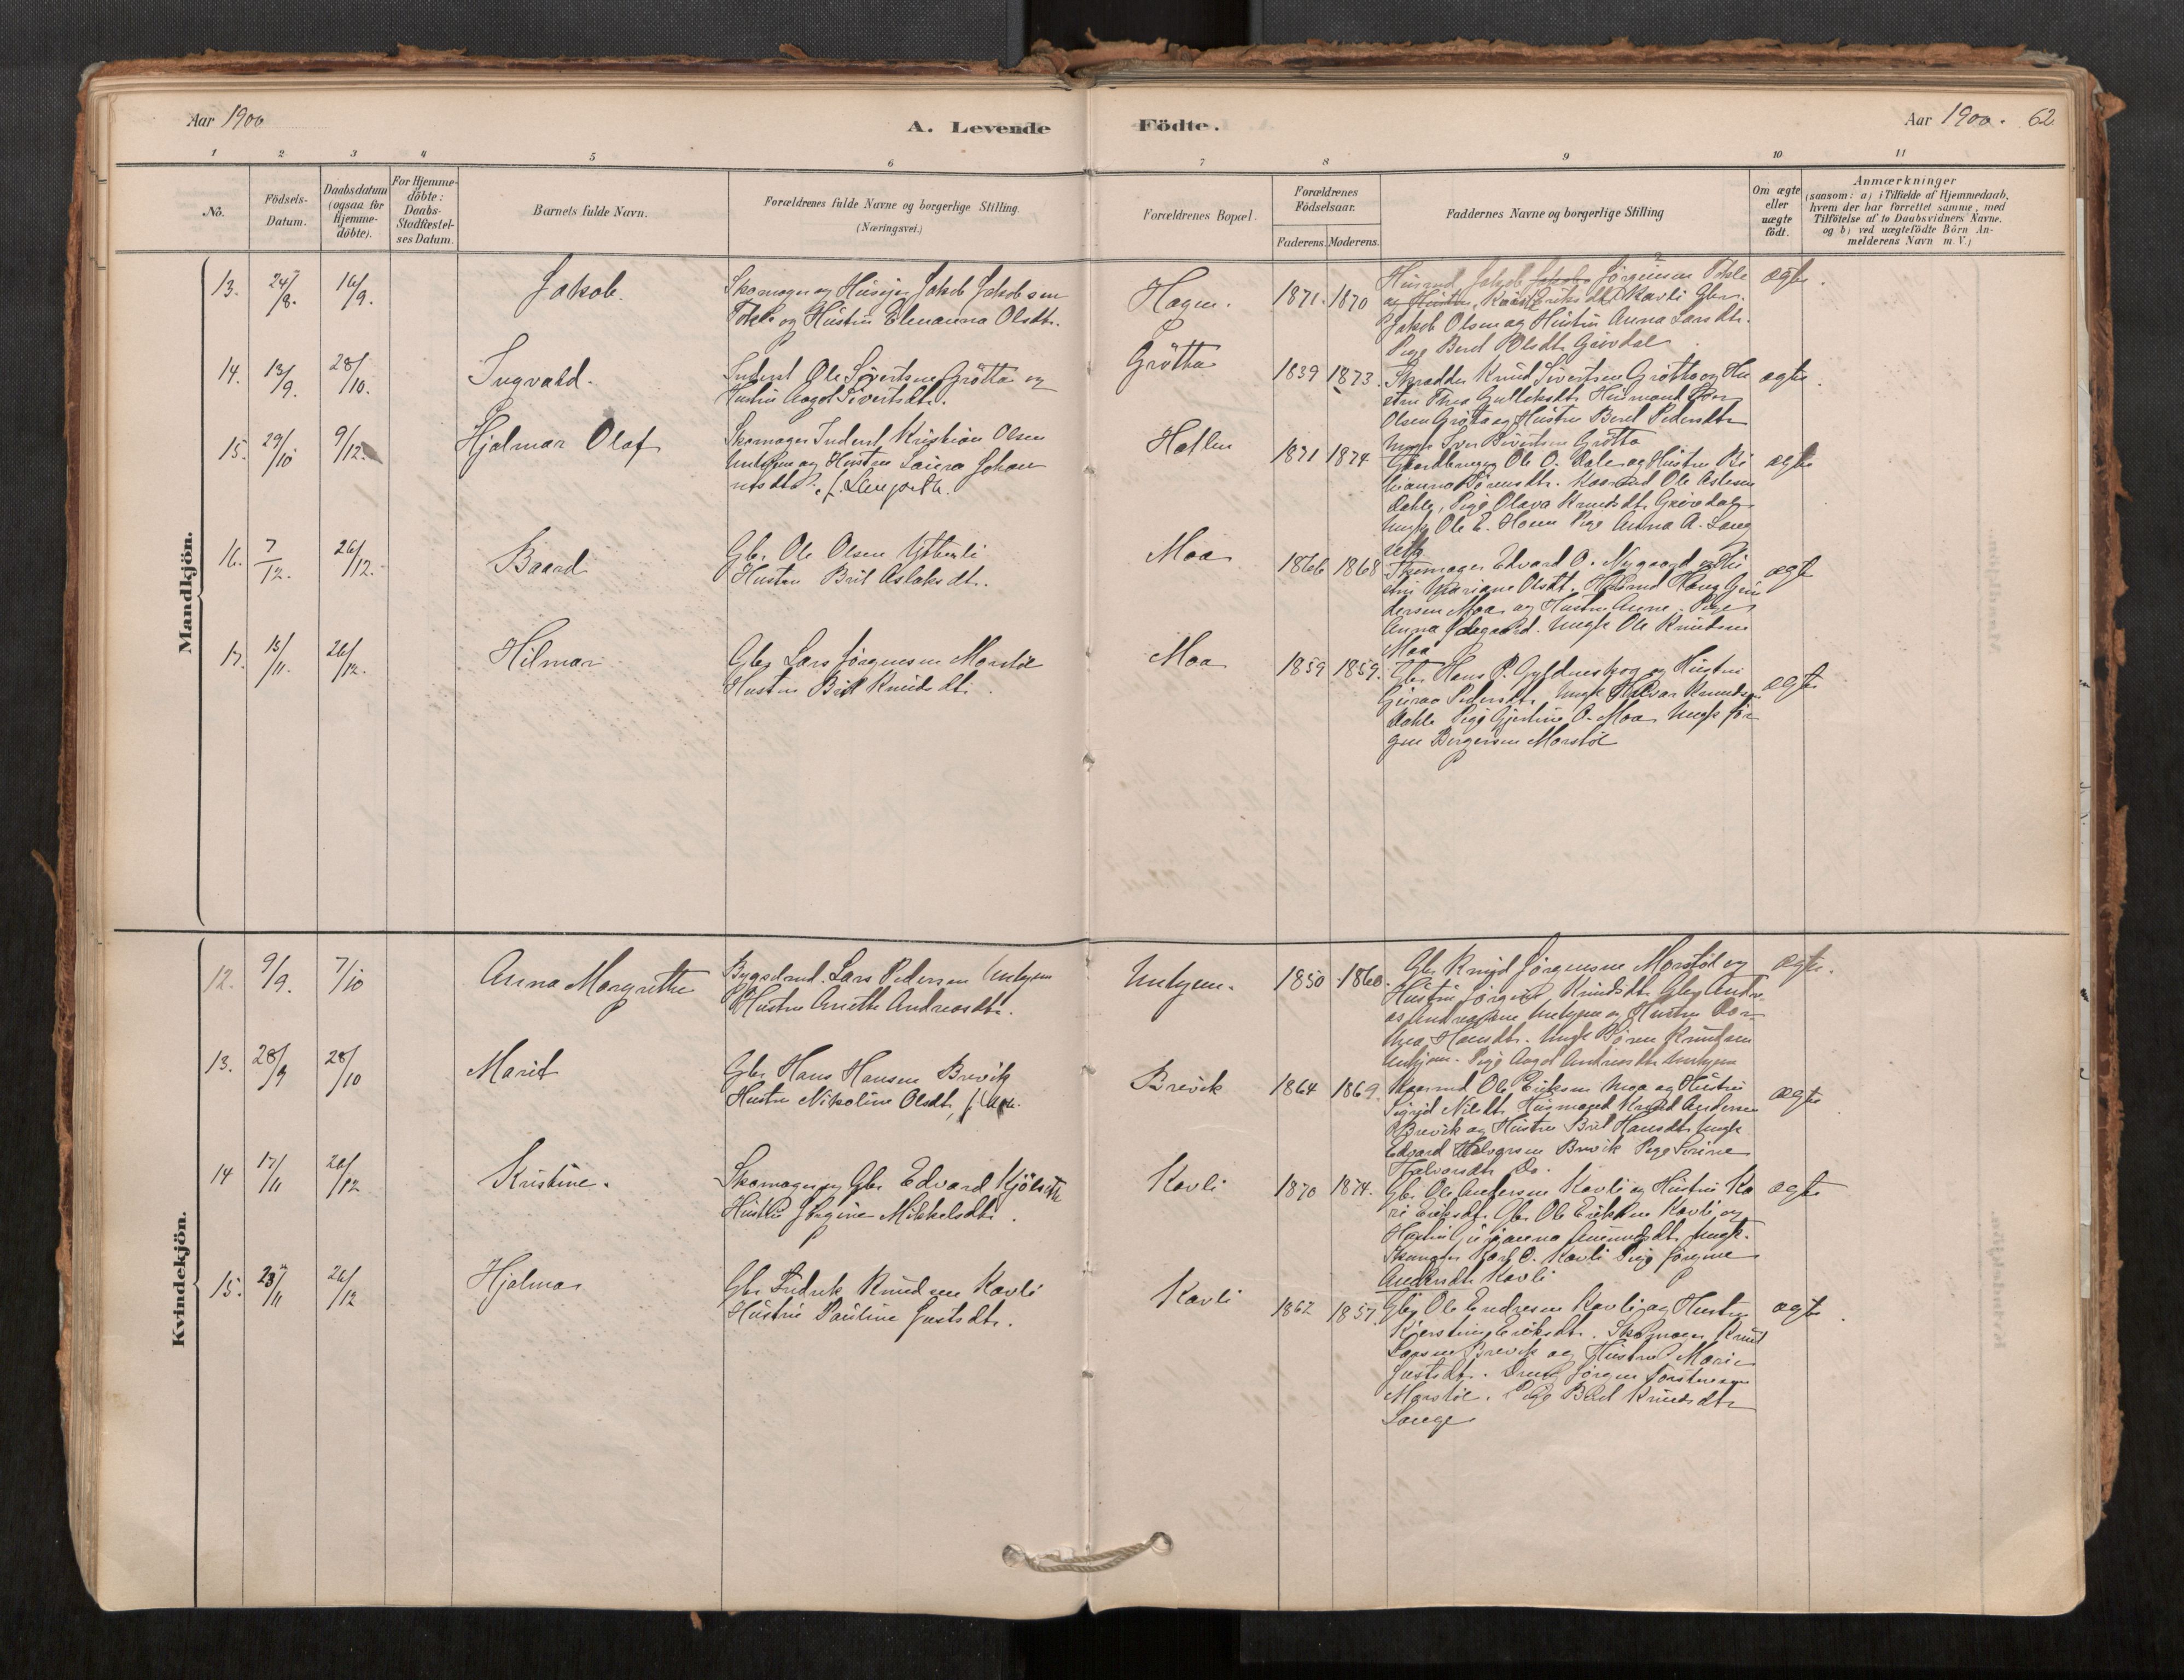 Aar 1900
A. Levende
Födte.
Aar 1900. 62
1 2 3 4 5 6 7 8 9 10 11
No.
Födsels-Datum.
Daabsdatum (ogsaa for Hjemme-döbte).
For Hjemme-döbte: Daabs-Stadfæstel-ses Datum.
Barnets fulde Navn.
Forældrenes fulde Navne og borgerlige Stilling.
(Næringsvei.)
Forældrenes Bopæl.
Forældrenes Födselsaar.
Faderens. Moderens.
Faddernes Navne og borgerlige Stilling
Om ægte eller uægte födt.
Anmærkninger
(saasom: a) i Tilfælde af Hjemmedaab, hvem der har forrettet samme, med Tilföielse af to Daabsvidners Navne, og b) ved uægtefödte Börn An-melderens Navn m. V.)
Mandkjön.
13. 24/8. 16/9. Jakob.
Skomager og Husejer Jakob Jakobsen
og Hustru Elenanna Olsdtr.
Hagen. 1871. 1870
Husmd Jakob Jørgensen
og Hustru, Eriksdtr Kavli Gbr.
Jakob Olsen og Hustru Anna Larsdtr.
Pige Beret Olsdtr Grøvdal
ægte.
14. 13/9. 28/10. Ingvald.
Inderst Ole Sivertsen Grötta og
Hustru Aagot Sivertsdtr.
Grötta 1839 1873.
Skrædder Knud Sivertsen Grötta og Hu
stru Thea Gulleksdtr Husmand
Olsen Gröta og Hustru Beret Pedersdtr
Ungk Iver Sivertsen Grötta
ægte.
15. 29/10 9/12. Hjalmar Olaf
Skomager Inderst Kristian Olsen
og Hustru Laura Johan
nesdtr. f. Langseth.
Hatlen 1871 1874
Gaardbruger Ole O. Dale og Hustru
Kaarmd Ole Aslesen
Dahle, Pige Olava Knudsdtr Grövdal
Ungk Ole E. Pige Anna A. Lang
seth
ægte
16. 7/12. 26/12. Baard
Gbr. Ole Olsen
Hustru Brit Aslaksdtr.
Moa 1866 1868
Skomager Edvard O. Nygaard og Hu
stru Mariane Olsdtr. Husmd Hans Gun
dersen Moa og Hustru Anne. Pige
Anna Ødegaard. Ungk Ole Knudsen
Moa
ægte
17. 15/11. 26/12. Hilmar
Gbr Lars Jörgensen Morstöl
Hustru Brit Knudsdtr.
Moa 1859 1859.
Gbr. Hans P. Gyldenskog og Hustru
Guroa Pedersdtr. Ungk Halvar Knudsen
Dahle Pige Gjertine O. Moa Ungk Jör
gen Birgersen Morstöl
ægte
Kvindekjön.
12. 9/9. 7/10 Anna Margrethe
Bygselmd. Lars Pedersen Unhjem
Hustru Anette Andreasdtr.
Unhjem. 1850 1860.
Gbr Knud Jörgensen Morstöl og
Hustru Jörgine Knudsdtr Gbr Andre
as Andreassen Unhjem og Hustru Dor
thea Hansdtr. Ungk Sören Knudsen
Unhjem. Pige Aagot Andreasdtr Unhjem
ægte.
13. 28/9 28/10 Marit
Gbr Hans Hansen Brevik
Hustru Nikoline Olsdtr, f. Moa.
Brevik 1864 1869.
Kaarmd Ole Eriksen Moa og Hustru
Sigrid Nilsdtr Husmand Knud Andersen
Brevik og Hustru Brit Hansdtr Ungk
Edvard Halvorsen Brevik Pige Serine
Halvorsdtr Do.
ægte
14 17/11 26/12 Kristine.
Skomager og Gbr Edvard Kjölseth
Hustru Jörgine Mikkelsdtr.
Kavli 1870 1874.
Gbr. Ole Andersen Kavli og Hustru Ka
ri Eriksdtr. Gbr. Ole Eriksen Kavli og
Hustru Gurianna Amundsdtr Ungk.
Skomager Karl O. Kavli Pige Jörgine
Andersdtr Kavli
ægte
15. 23/11 26/12 Hjalma
Gbr Fredrik Knudsen Kavli
Hustru Pauline Justsdtr.
Kavli 1862 1857.
Gbr Ole Endresen Kavli og Hustru
Kjerstine Eriksdtr. Skomager Knud
Larsen Brevik og Hustru Marie
Justsdtr. Jörgen Torstensen
Morstöl. Pige Brit Knudsdtr
Lange
ægte.